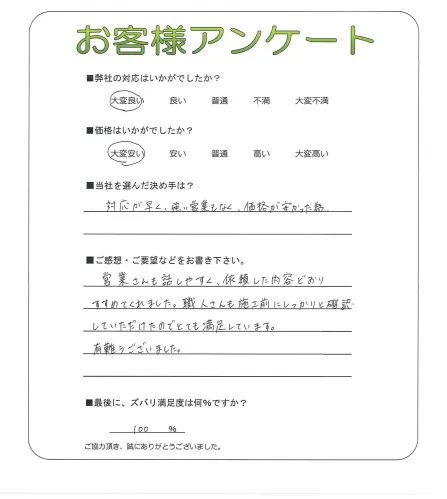 お客様アンケート
■弊社の対応はいかがでしたか？
大変良い 良い 普通 不満 大変不満
■価格はいかがでしたか？
大変安い 安い 普通 高い 大変高い
■当社を選んだ決め手は？
対応が早く、強い営業もなく、価格が安かった
■ご感想・ご要望などをお書き下さい。
営業さんも話しやすく、依頼した内容どおり
すすめてくれました。職人さんも施工前にしっかりと確認
していただけたのでとても満足しています。
有難うございました。
■最後に、ズバリ満足度は何%ですか？
100 %
ご協力頂き、誠にありがとうございました。